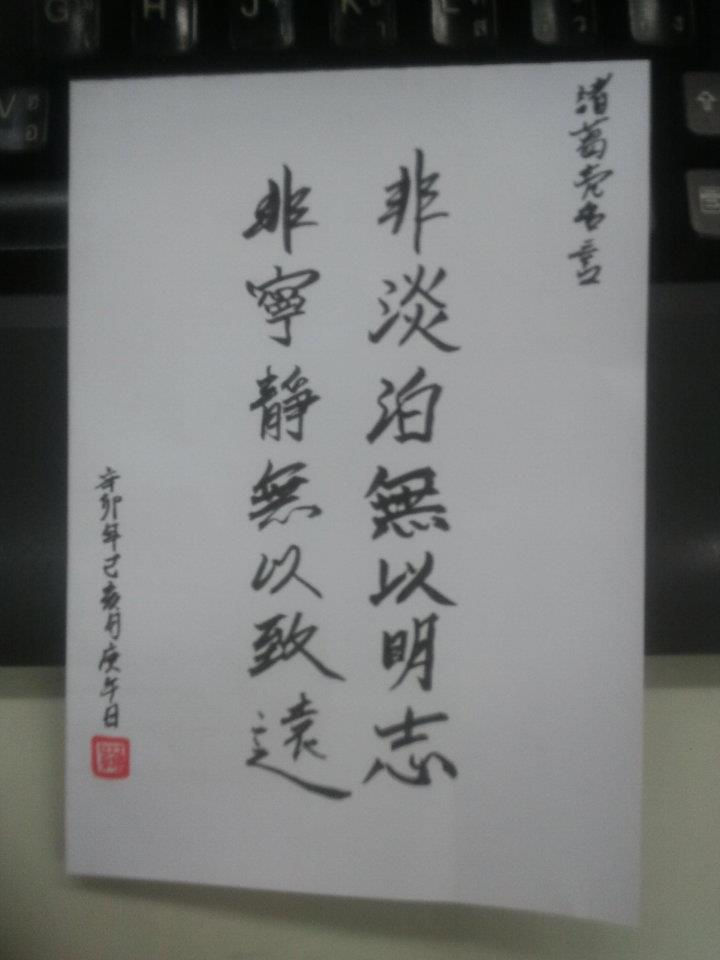 G H J K L
V ฮ อ
諸葛亮名言
非淡泊無以明志
非寧靜無以致遠
辛卯年己亥月庚午日